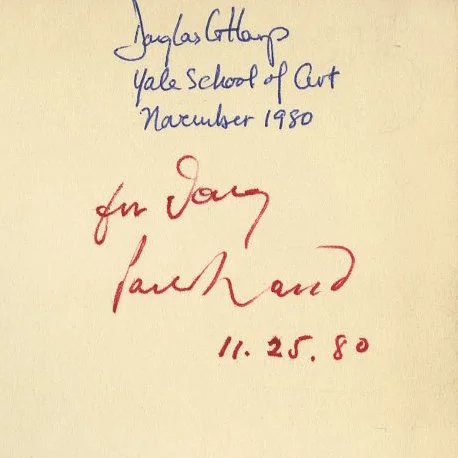 Douglas G Harp
Yale School of Art
November 1980
for Doug
Paul Rand
11.25.80